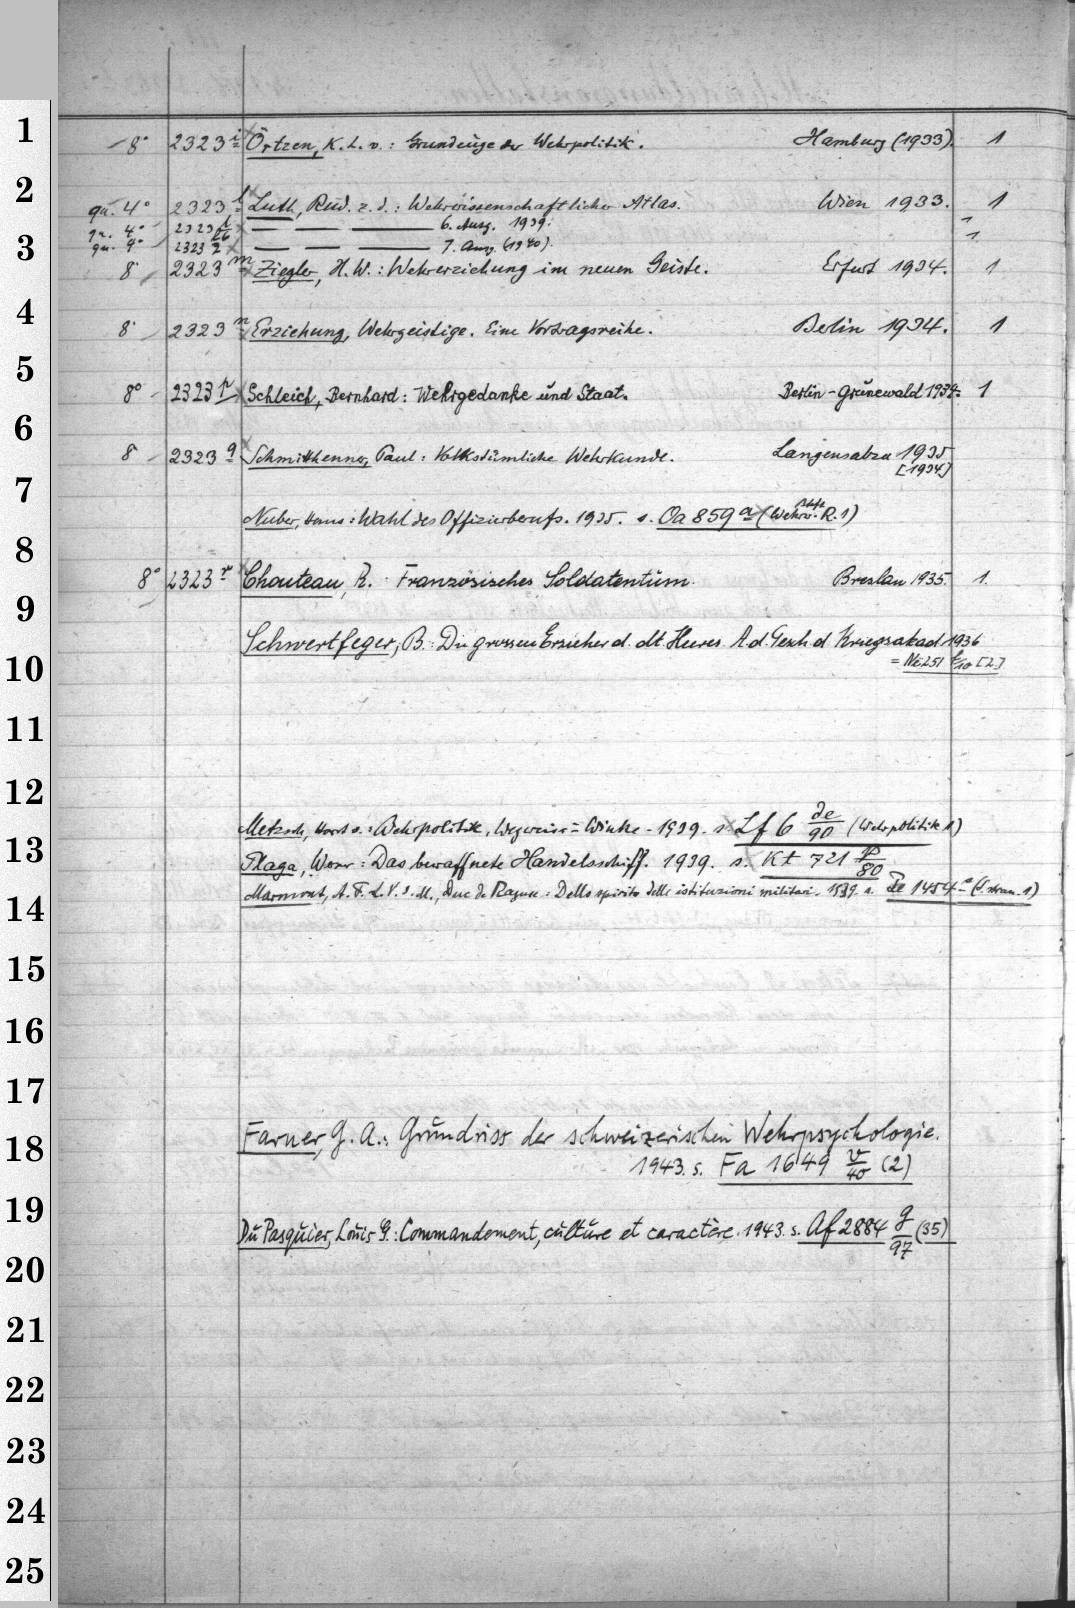 1
8° 2323 i Örtzen, K. L. v.: Grundzüge der Wehrpolitik. Hamburg (1933). 1
2
qu. 4° 2323 l Luth, Rud. z. d.: Wehrwissenschaftlicher Atlas. Wien 1933. 1
qu. 4° 2323 — — — 6. Ausg. 1939. "
3
qu. 4° 2323 — — — 7. Ausg. (1940). 1.
8° 2323 m Ziegler, H. W.: Wehrerziehung im neuen Geiste. Erfurt 1934. 1
4
8° 2323 n Erziehung, Wehrgeistige. Eine Vortragsreihe. Berlin 1934. 1
5
8° 2323 p Schleich, Bernhard: Wehrgedanke und Staat. Berlin-Grünewald 1934. 1
6
8° 2323 q Schmitthenner, Paul: Volkstümliche Wehrkunde. Langensalza 1935
[1934]
7
Nuber, Hans: Wahl des Offizierberufs. 1935. s. Oa 859 a (Wehrw. R. 1)
8
8° 2323 r Chouteau, R. Französisches Soldatentum. Breslau 1935. 1.
9
Schwertfeger, B.: Die grossen Erzieher d. dt. Heeres. A. d. Gesch. d. Kriegsakad. 1936
10
= Ni 251 [2]
11
12
Metzsch, Horst v.: Wehrpolitik, Wegweiser = Winke. 1939. s. Lf 6 de/90 (Wehrpolitik 1)
13
Plaga, Wern: Das bewaffnete Handelsschiff. 1939. s. Kt 721 p/80
Marmont, A. F. L. V. d. M., Duc de Raguse: Dello spirito delle istituzioni militari. 1939. s. 1454 (1)
14
15
16
17
Farner, G. A.: Grundriss der schweizerischen Wehrpsychologie.
18
1943. s. Fa 1649 v/40 (2)
19
Du Pasquier, Louis G.: Commandement, culture et caractère. 1943. s. Af 2884 g/97 (35)
20
21
22
23
24
25